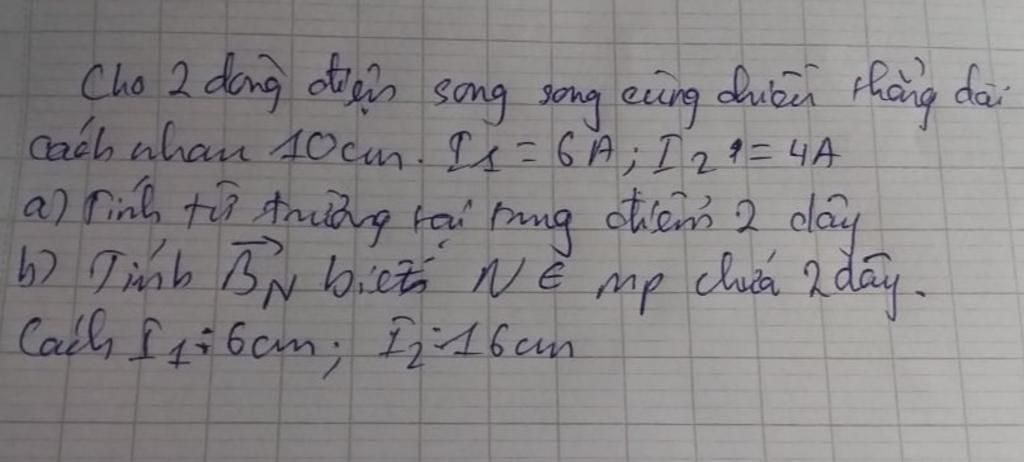 Cho 2 dòng điện song song cùng chiều thẳng dài
cách nhau 10cm. I1 = 6A; I2 = 4A
a) Tính từ trường tại trung điểm 2 dây
b) Tính B⃗N biết N ∈ mp chứa 2 dây.
Cách I1: 6cm; I2: 16cm